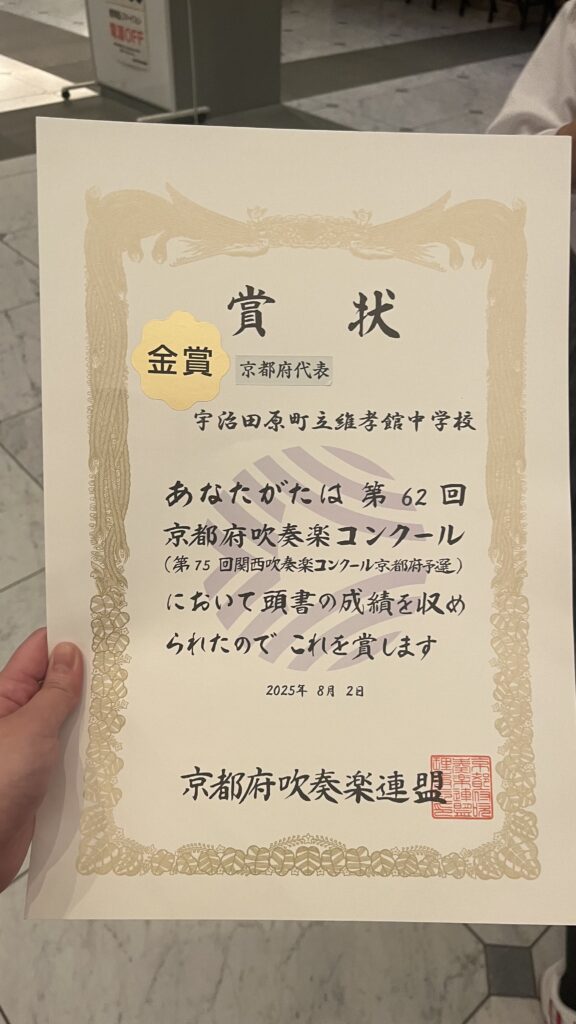 電源OFF
賞 状
金賞
京都府代表
宇治田原町立維孝館中学校
あなたがたは 第 62 回
京都府吹奏楽コンクール
(第 75 回関西吹奏楽コンクール京都府予選)
において頭書の成績を収め
られたので これを賞します
2025年 8月 2日
京都府吹奏楽連盟